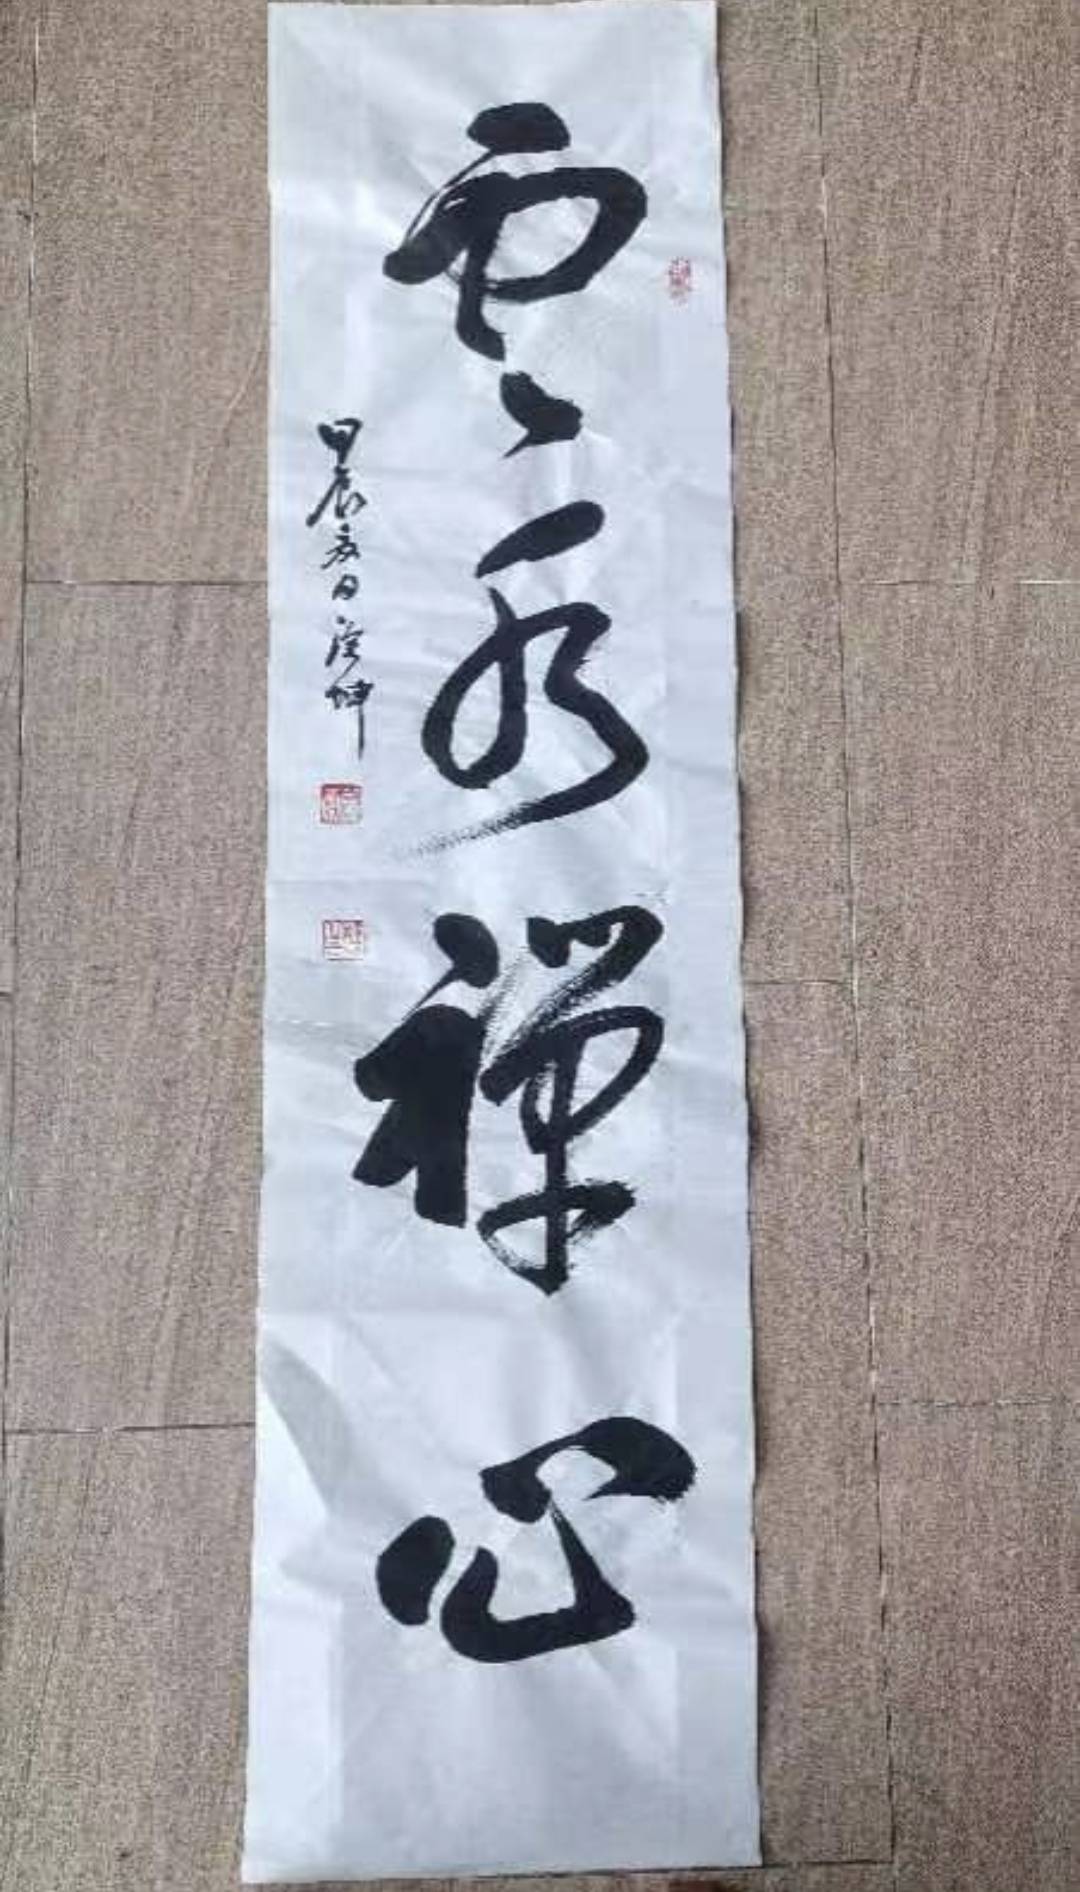 雲水禪心
甲辰夏日 坤